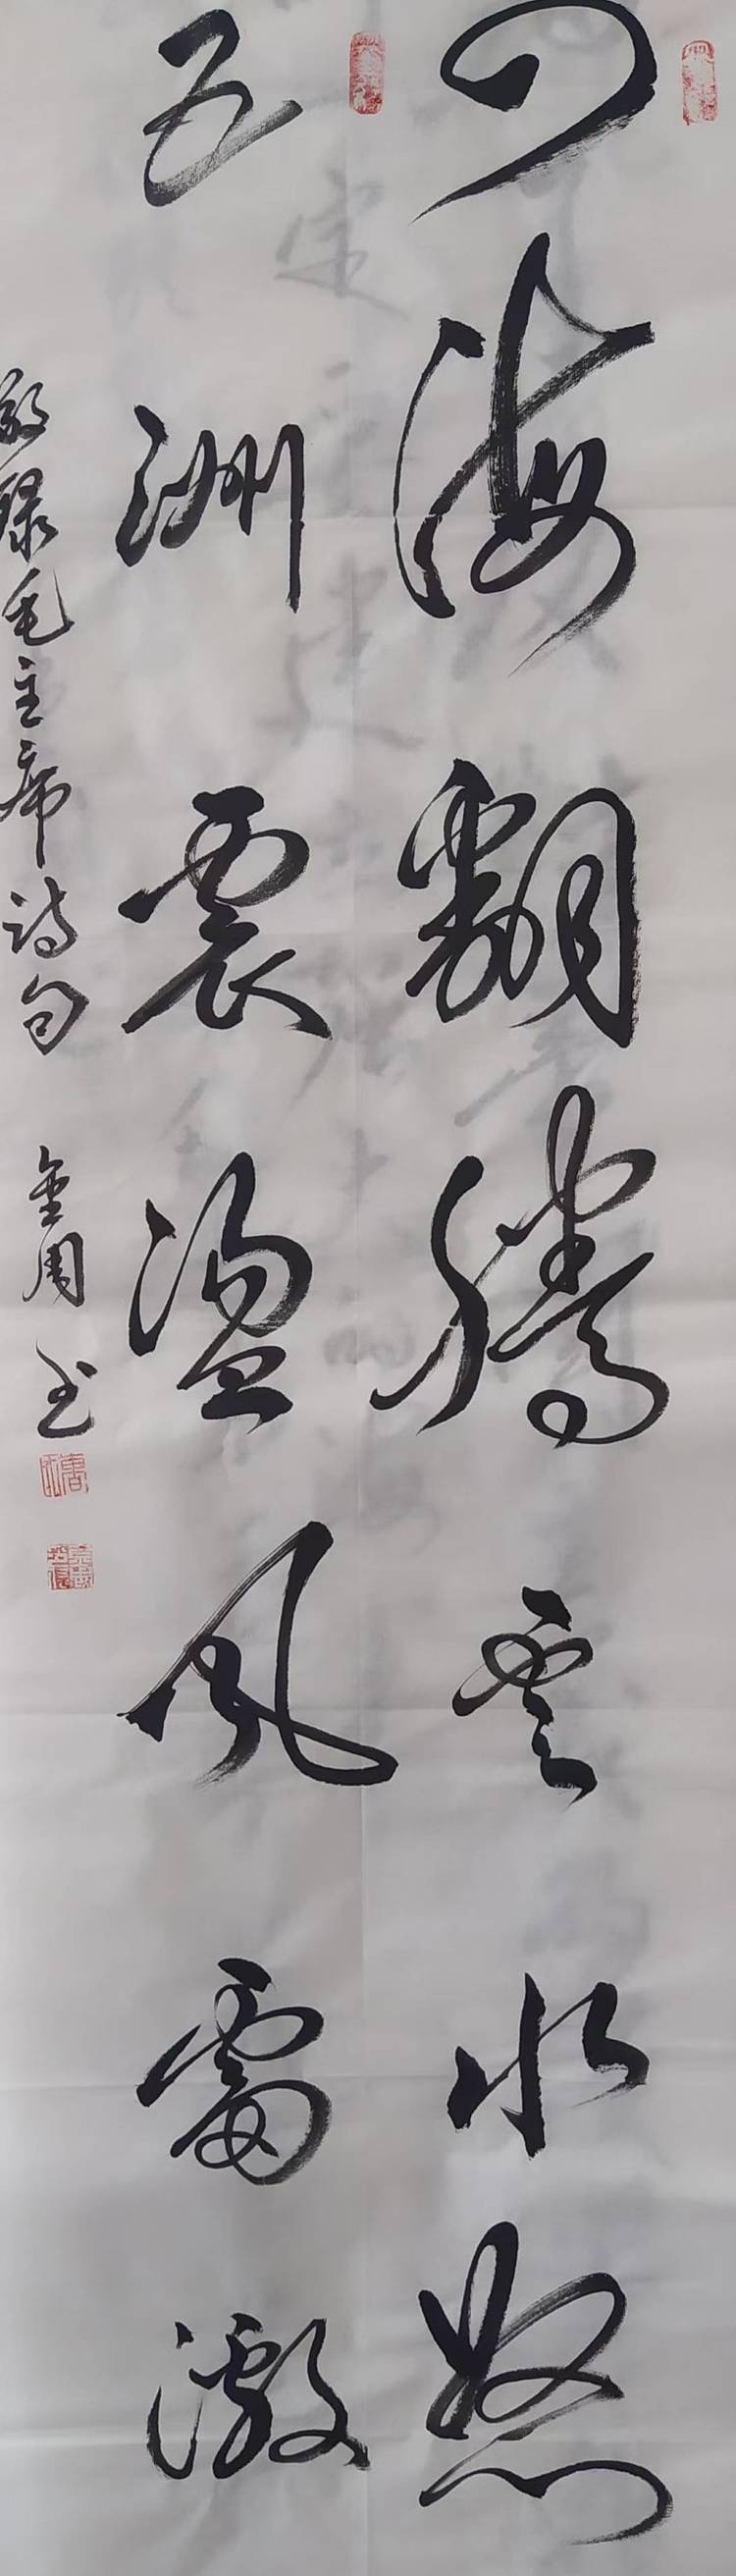 四海翻腾云水怒
五洲震盪风雷激
敬録毛主席诗句 金周书